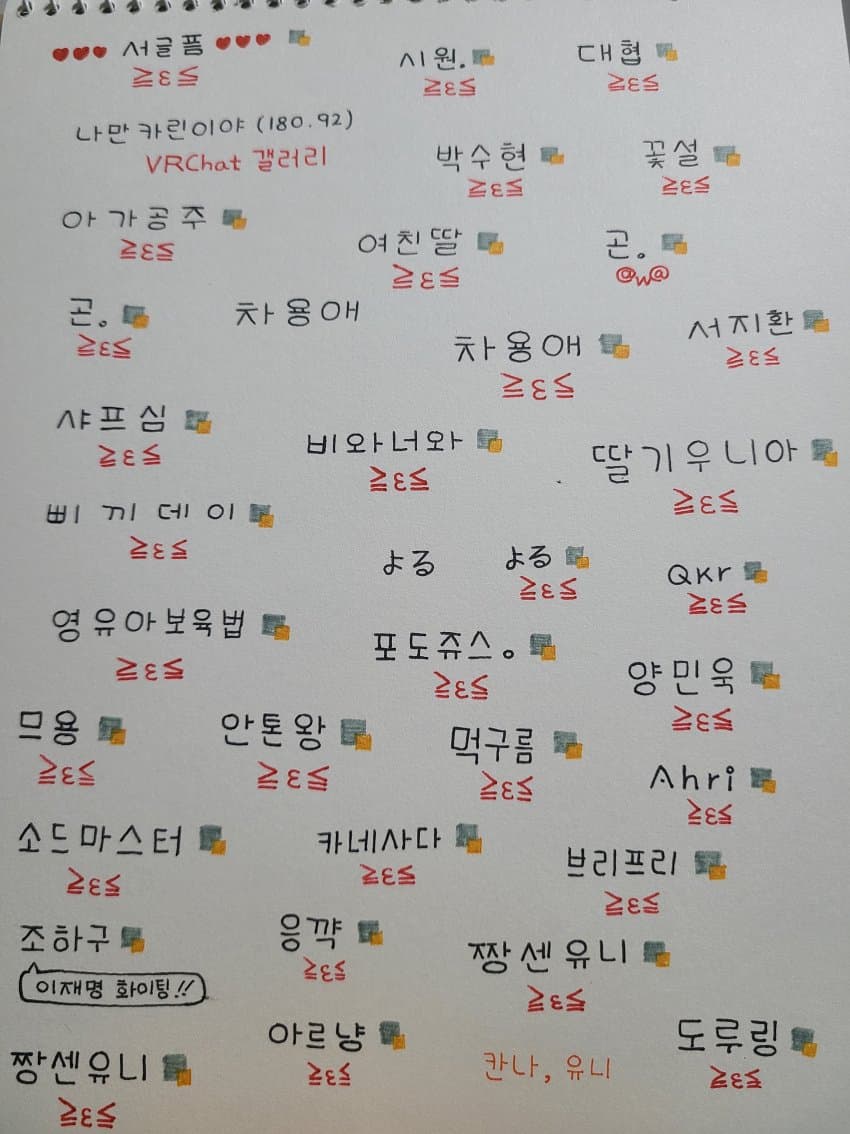 ♥♥♥ 서글픔 ♥♥♥
≧ε≦
시원.
≧ε≦
대협
≧ε≦
나만카린이야 (180.92)
VRChat 갤러리
박수현
≧ε≦
꽃설
≧ε≦
아가공주
≧ε≦
여친딸
≧ε≦
곤。
@w@
곤。
≧ε≦
차용애
차용애
≧ε≦
서지환
≧ε≦
샤프심
≧ε≦
비와너와
≧ε≦
딸기우니아
≧ε≦
삐끼데이
≧ε≦
よる
よる
≧ε≦
Qkr
≧ε≦
영유아보육법
≧ε≦
포도쥬스。
≧ε≦
양민욱
≧ε≦
므용
≧ε≦
안톤왕
≧ε≦
먹구름
≧ε≦
Ahri
≧ε≦
소드마스터
≧ε≦
카네사다
≧ε≦
브리프리
≧ε≦
조하구
이재명 화이팅!!
응꺅
≧ε≦
짱센유니
≧ε≦
짱센유니
≧ε≦
아르냥
≧ε≦
칸나, 유니
도루링
≧ε≦